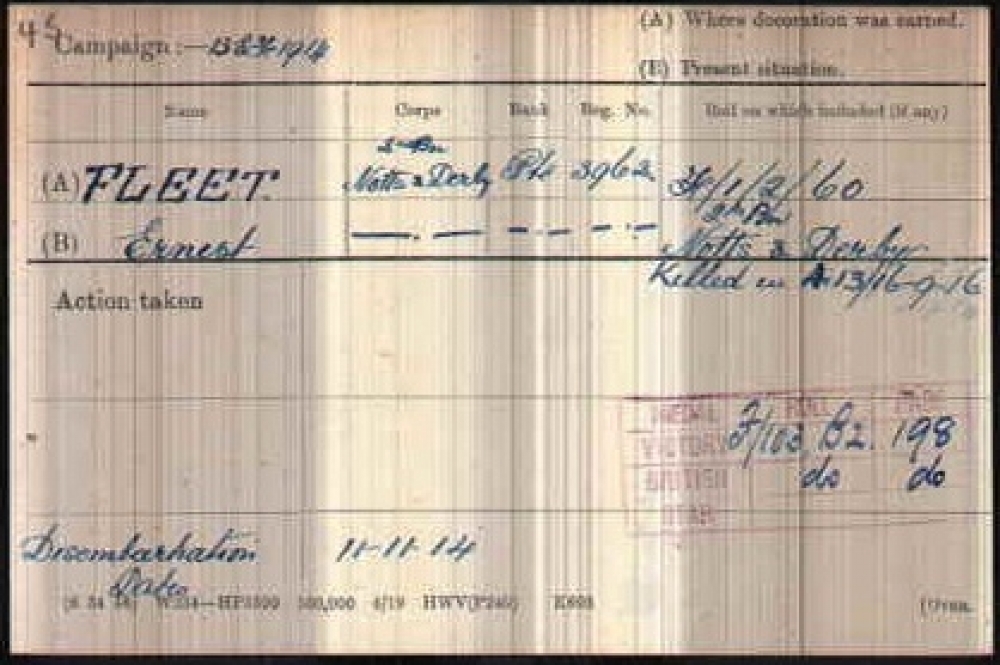 (A) Where decoration was earned.
Campaign :— 1914
(B) Present situation.
Name Corps Rank Reg. No. Roll on which included (if any)
2 Bn
(A) FLEET. Notts & Derby Pte 3962 H/1/2/60
Bn
(B) Ernest — . — — . — — . — Notts & Derby
Killed in A 13/16-9-16
Action taken
MEDAL ROLL PAGE
VICTORY J/103 B2. 198
BRITISH do do
STAR
Disembarkation 11-11-14
Date
W234—HP5590 500,000 4/19 HWV(P240) K608
(Over.